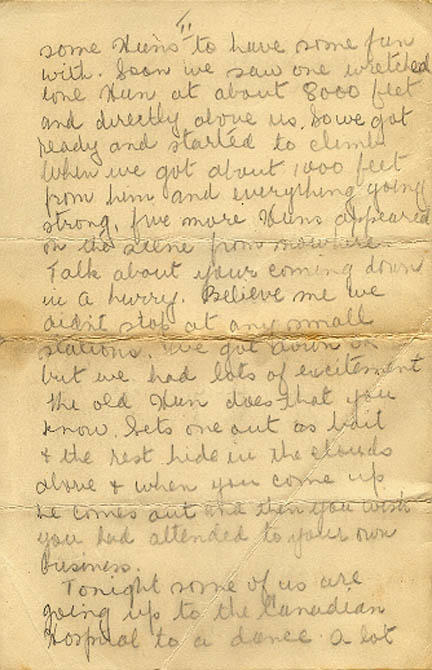 II
some Huns to have some fun
with. Soon we saw one wretched
lone Hun at about 8000 feet
and directly above us. So we got
ready and started to climb
When we got about 1000 feet
from him and everything going
strong, five more Huns appeared
on the scene from nowhere.
Talk about your coming down
in a hurry. Believe me we
didnt stop at any small
stations. We got down OK
but we had lots of excitement
the old Hun does that you
know. Sets one out as bait
& the rest hide in the clouds
above & when you come up
he comes out and then you wish
you had attended to your own
business.
Tonight some of us are
going up to the Canadian
Hospital to a dance. A lot